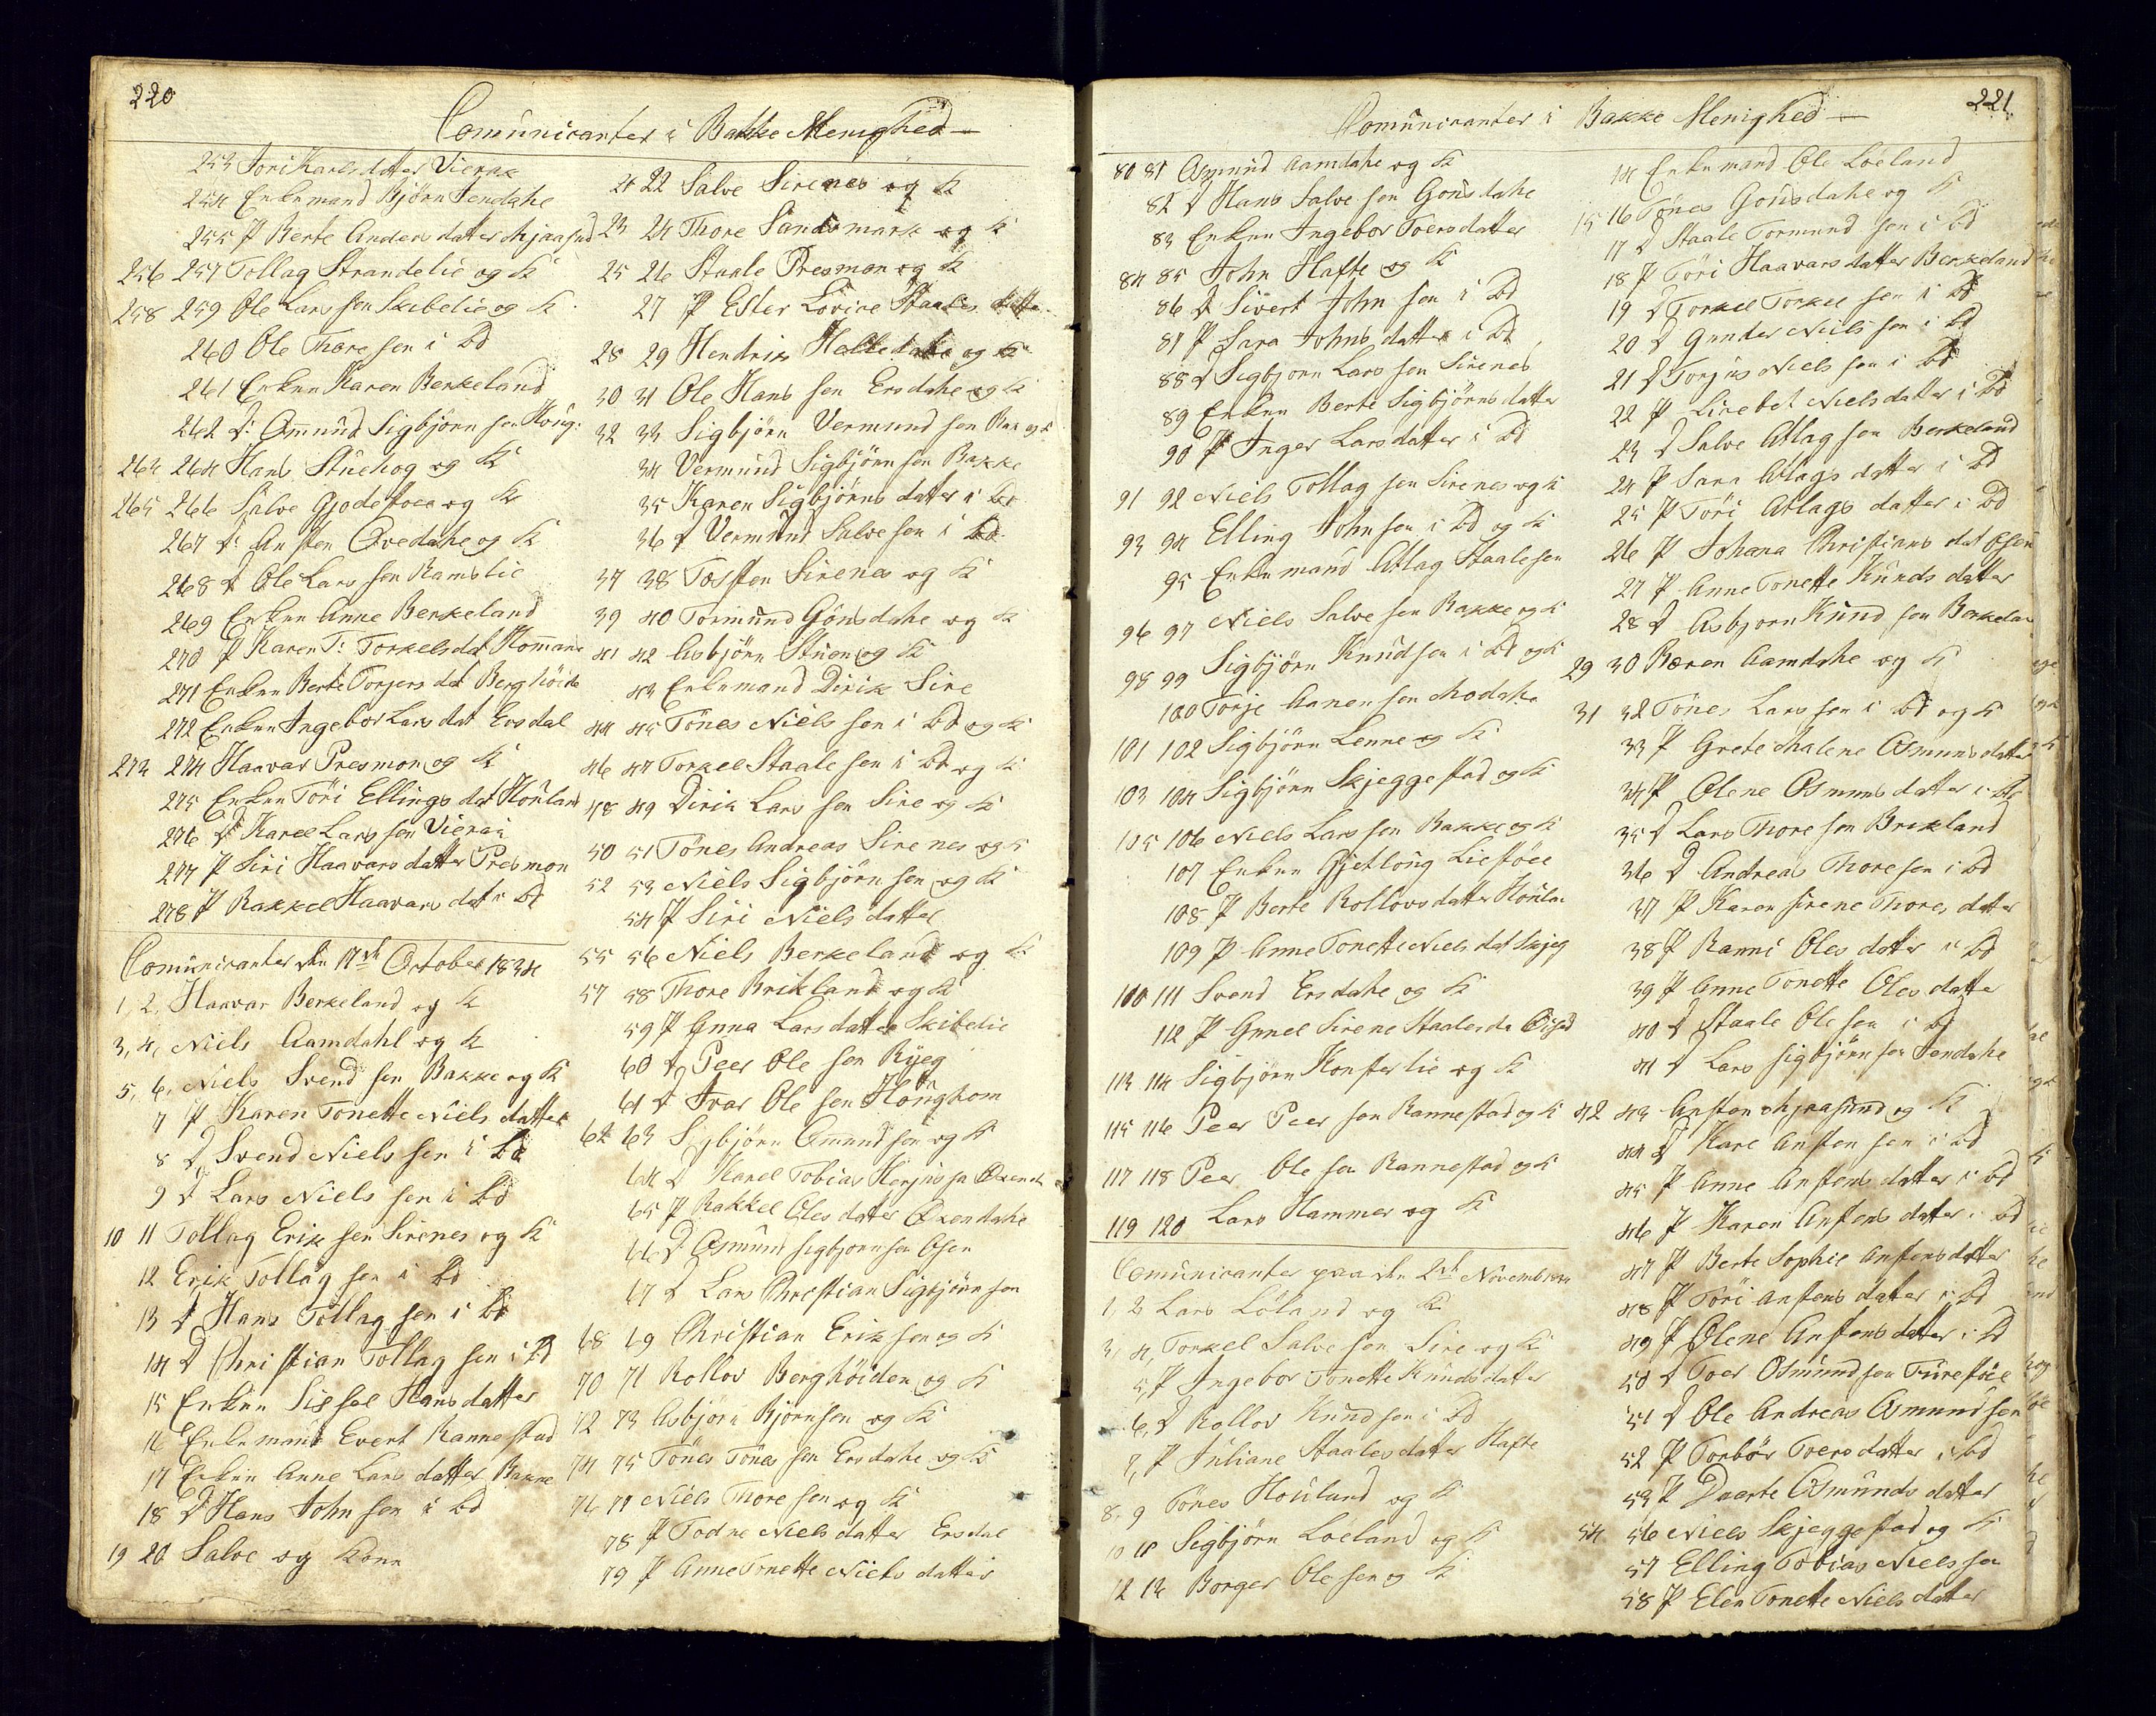 220
Comunicanter i Bakke Menighed
253 Tori Karls datter Vierak
254 Enkemand Björn Fendahe
255 P Berte Anders datter Mjaasund
256 257 Tollag Strandelie og K
258 259 Ole Lars sen Skibelie og K
260 Ole Thore sen i bd
261 Enken Karen Berkeland
262 D: Omund Sigbjörn sen Houg:
263 264 Hans Stuehog og K
265 266 Salve Gjodestoel og K
267 D: Ansten Ovedahe og K
268 D Ole Lars sen Ramslie
269 Enken Anne Berkeland
270 P Karen T: Torkels dat Homane
271 Enken Berte Torgers dat Berghöide
272 Enken Ingebor Lars dat Ersdal
273 274 Haavar Presmon og K
275 Enken Töri Ellings dat Houland
276 D Karel Lars sen Vierak
277 P Siri Haavars datter Presmon
278 P Rakkel Haavars dat i bd
Comunicanter den 17de October 1834
1, 2, Haavar Berkeland og K
3, 4, Niels Aamdahl og K
5, 6, Niels Svend sen Bakke og K
7 P Karen Tonette Niels datter
8 D Svend Niels sen i bd
9 D Lars Niels sen i bd
10 11 Tollag Erik sen Sirenes og K
12 Erik Tollag sen i bd
13 D Hans Tollag sen i bd
14 D Christian Tollag sen i bd
15 Enken Sissel Hans datter
16 Enkemand Evert Rannestad
17 Enken Anne Lars datter Bakke
18 D Hans John sen i bd
19 20 Salve og Kone
21 22 Salve Sirenes og K
23 24 Thore Sandsmark og K
25 26 Staale Presmon og K
27 P Ester Lovise Staales datte
28 29 Hendrik Helledahe og K
30 31 Ole Hans sen Ersdahe og K
32 33 Sigbjörn Vermund sen Bak og K
34 Vermund Sigbjörn sen Bakke
35 Karen Sigbjörns datter i bd
36 D Vermund Salve sen i bd
37 38 Tosten Sirenes og K
39 40 Tormund Gönsdahe og K
41 42 Asbjörn Stuen og K
43 Enkemand Dirik Sire
44 45 Tönes Niels sen i bd og K
46 47 Torkel Staale sen i bd og K
48 49 Dirik Lars sen Sire og K
50 51 Tönes Andreas Sirenes og K
52 53 Niels Sigbjörn sen og K
54 P Siri Niels datter
55 56 Niels Berkeland og K
57 58 Thore Brikland og K
59 P Gunna Lars datter Skibelie
60 D Peer Ole sen Ryeg
61 D Ivar Ole sen Houghom
62 63 Sigbjörn Omund sen og K
64 D Karel Tobias Herjus sen Oxendahe
65 P Rakkel Oles datter Oxendahe
66 D Osmund Sigbjorn sen Osen
67 D Lars Christian Sigbjörn sen
68 69 Christian Erik sen og K
70 71 Rollov Berghöiden og K
72 73 Asbjörn Björnsen og K
74 75 Tönes Tönes sen Ersdahe og K
76 77 Niels Thore sen og K
78 P Todne Niels datter Ersdal
79 P Anne Tonette Niels datter
221
Comunicanter i Bakke Menighed
80 81 Osmund Aamdahe og K
82 D Hans Salve sen Gönsdahe
83 Enken Ingebor Toersdatter
84 85 John Hafte og K
86 D Sivert John sen i bd
87 P Sara Johns datter i bd
88 D Sigbjorn Lars sen Sirenes
89 Enken Berte Sigbjörns datter
90 P Inger Lars datter i bd
91 92 Niels Tollag sen Sirenes og K
93 94 Elling John sen i bd og K
95 Enkemand Atlag Staalesen
96 97 Niels Salve sen Bakke og K
98 99 Sigbjörn Knudsen i bd og K
100 Torje Aanen sen Modahe
101 102 Sigbjörn Lenne og K
103 104 Sigbjörn Skjeggestad og K
105 106 Niels Lars sen Bakke og K
107 Enken Gjetloug Liestöel
108 P Berte Rollovs datter Houlan
109 P Anne Tonette Niels dat Skjeg
110 111 Svend Ersdahe og K
112 P Gunel Sirene Staales da
113 114 Sigbjörn Konsterlie og K
115 116 Peer Peer sen Rannestad og K
117 118 Peer Ole sen Rannestad og K
119 120 Lars Hammer og K
Comunicanter paa den 2de November
1, 2 Lars Löland og K
3, 4, Torkel Salve sen Sire og K
5, P Ingebor Tonette Knuds datter
6, D Rollov Knud sen i bd
7, P Juliane Staales datter Hafte
8, 9 Tönes Houland og K
10 11 Sigbjörn Loeland og K
12 13 Borger Ole sen og K
14 Enkemand Ole Loeland
15 16 Tönes Gonsdahe og K
17 D Staale Tormund sen i bd
18 P Töri Haavars datter Berkeland
19 D Torkel Torkel sen i bd
20 D Gunder Niels sen i bd
21 D Torjus Niels sen i bd
22 P Lisebet Niels datter i bd
23 D Salve Atlag sen Berkeland
24 P Sara Atlags datter i bd
25 P Töri Atlags datter i bd
26 P Johana Christians dat Osen
27 P Anne Tonette Knuds datter
28 D Asbjorn Knud sen Berkelan
29 30 Reren Aamdahe og K
31 32 Tönes Lars sen i bd og K
33 P Grete Malene Osmunds datter
34 P Olene Osmuns datter i bd
35 D Lars Thore sen Brikland
36 D Andreas Thore sen i bd
37 P Karen Sirene Thores datter
38 P Ranni Oles datter i bd
39 P Anne Tonette Oles datter
40 D Staale Ole sen i bd
41 D Lars Sigbjörn sen Fendahe
42 43 Ansten Mjaasund og K
44 D Karl Ansten sen i bd
45 P Anne Anstens datter i bd
46 P Karen Anstens datter i bd
47 P Berte Sophie Anstens datter
48 P Töri Anstens datter i bd
49 P Olene Anstens datter i bd
50 D Toer Osmund sen Furestöl
51 D Ole Andreas Osmund sen
52 P Torbör Toers datter i bd
53 P Daarte Osmunds datter
54 56 Niels Skjeggestad og K
57 Elling Tobias Niels sen
58 P Elen Tonette Niels datter